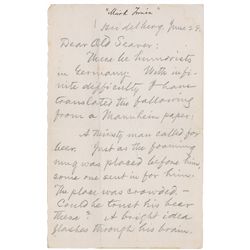 "Mark Twain"
Heidelberg, June 28.
Dear Old Seaver:
There be humorists
in Germany. With infi-
nite difficulty I have
translated the following
from a Mannheim paper:
A thirsty man called for
beer. Just as the foaming
mug was placed before him,
some one sent in for him.
The place was crowded—
Could he trust his beer
there? A bright idea
flashes through his brain.